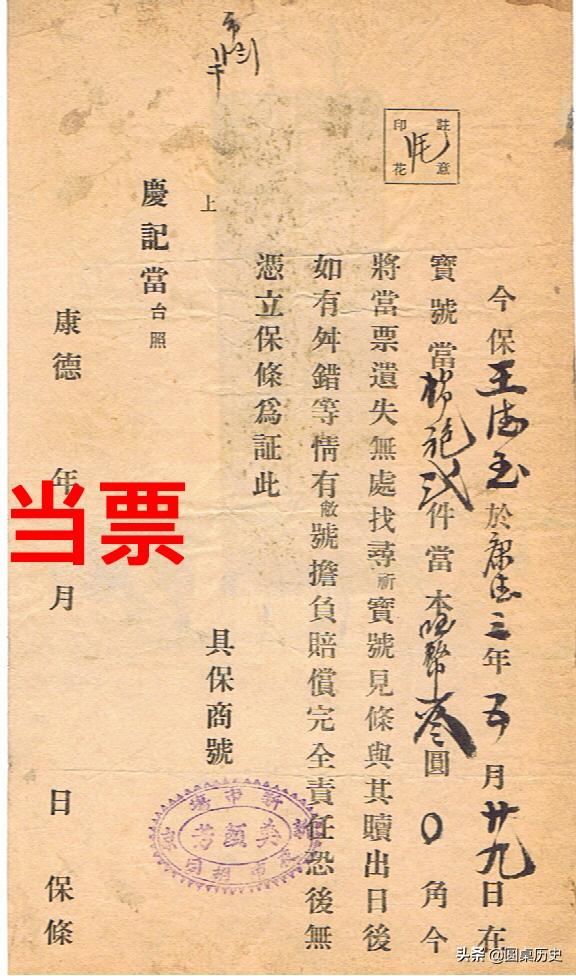 註意
印花
今保王玉於康德三年五月廿九日在
寶號當棉袍弍件當本國幣叁圓0角今
將當票遺失無處找尋祈寶號見條與其贖出日後
如有舛錯等情有敝號擔負賠償完全責任恐後無
憑立保條爲証此
上
慶記當台照
具保商號
新市場
胡同
康德 年 月 日 保條
当票
头条 @圆桌历史